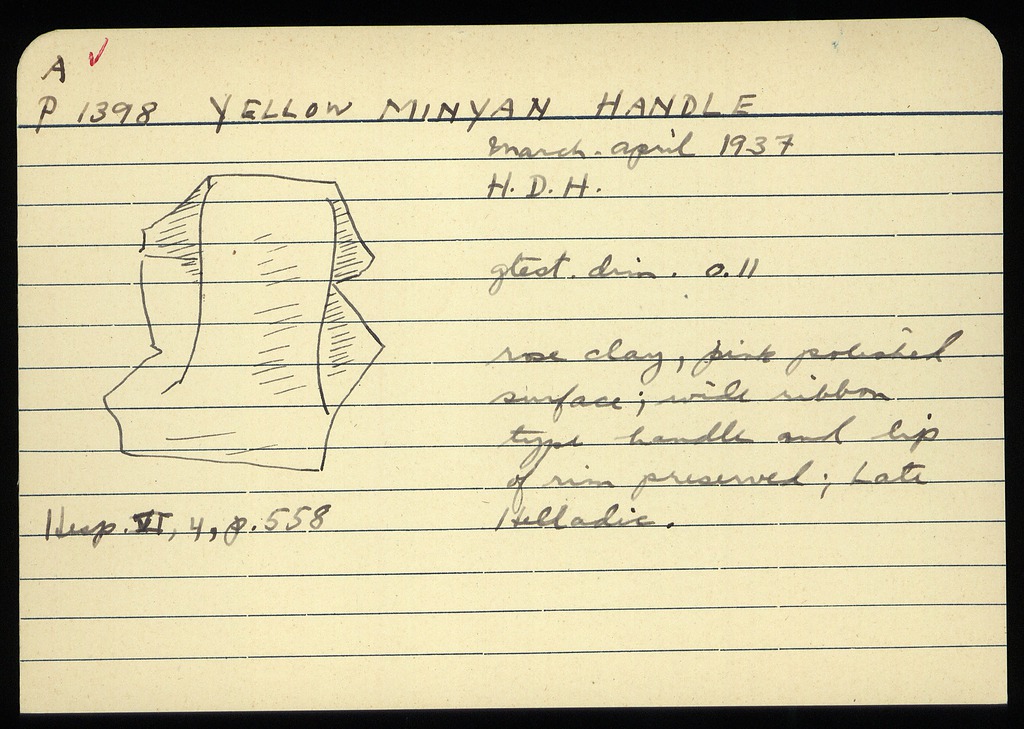 A
P 1398 YELLOW MINYAN HANDLE
March-April 1937
H. D. H.
gtest. dim. 0.11
rose clay, pink polished
surface; wide ribbon
type handle and lip
of rim preserved; Late
Helladic.
Hesp. VI, 4, p. 558